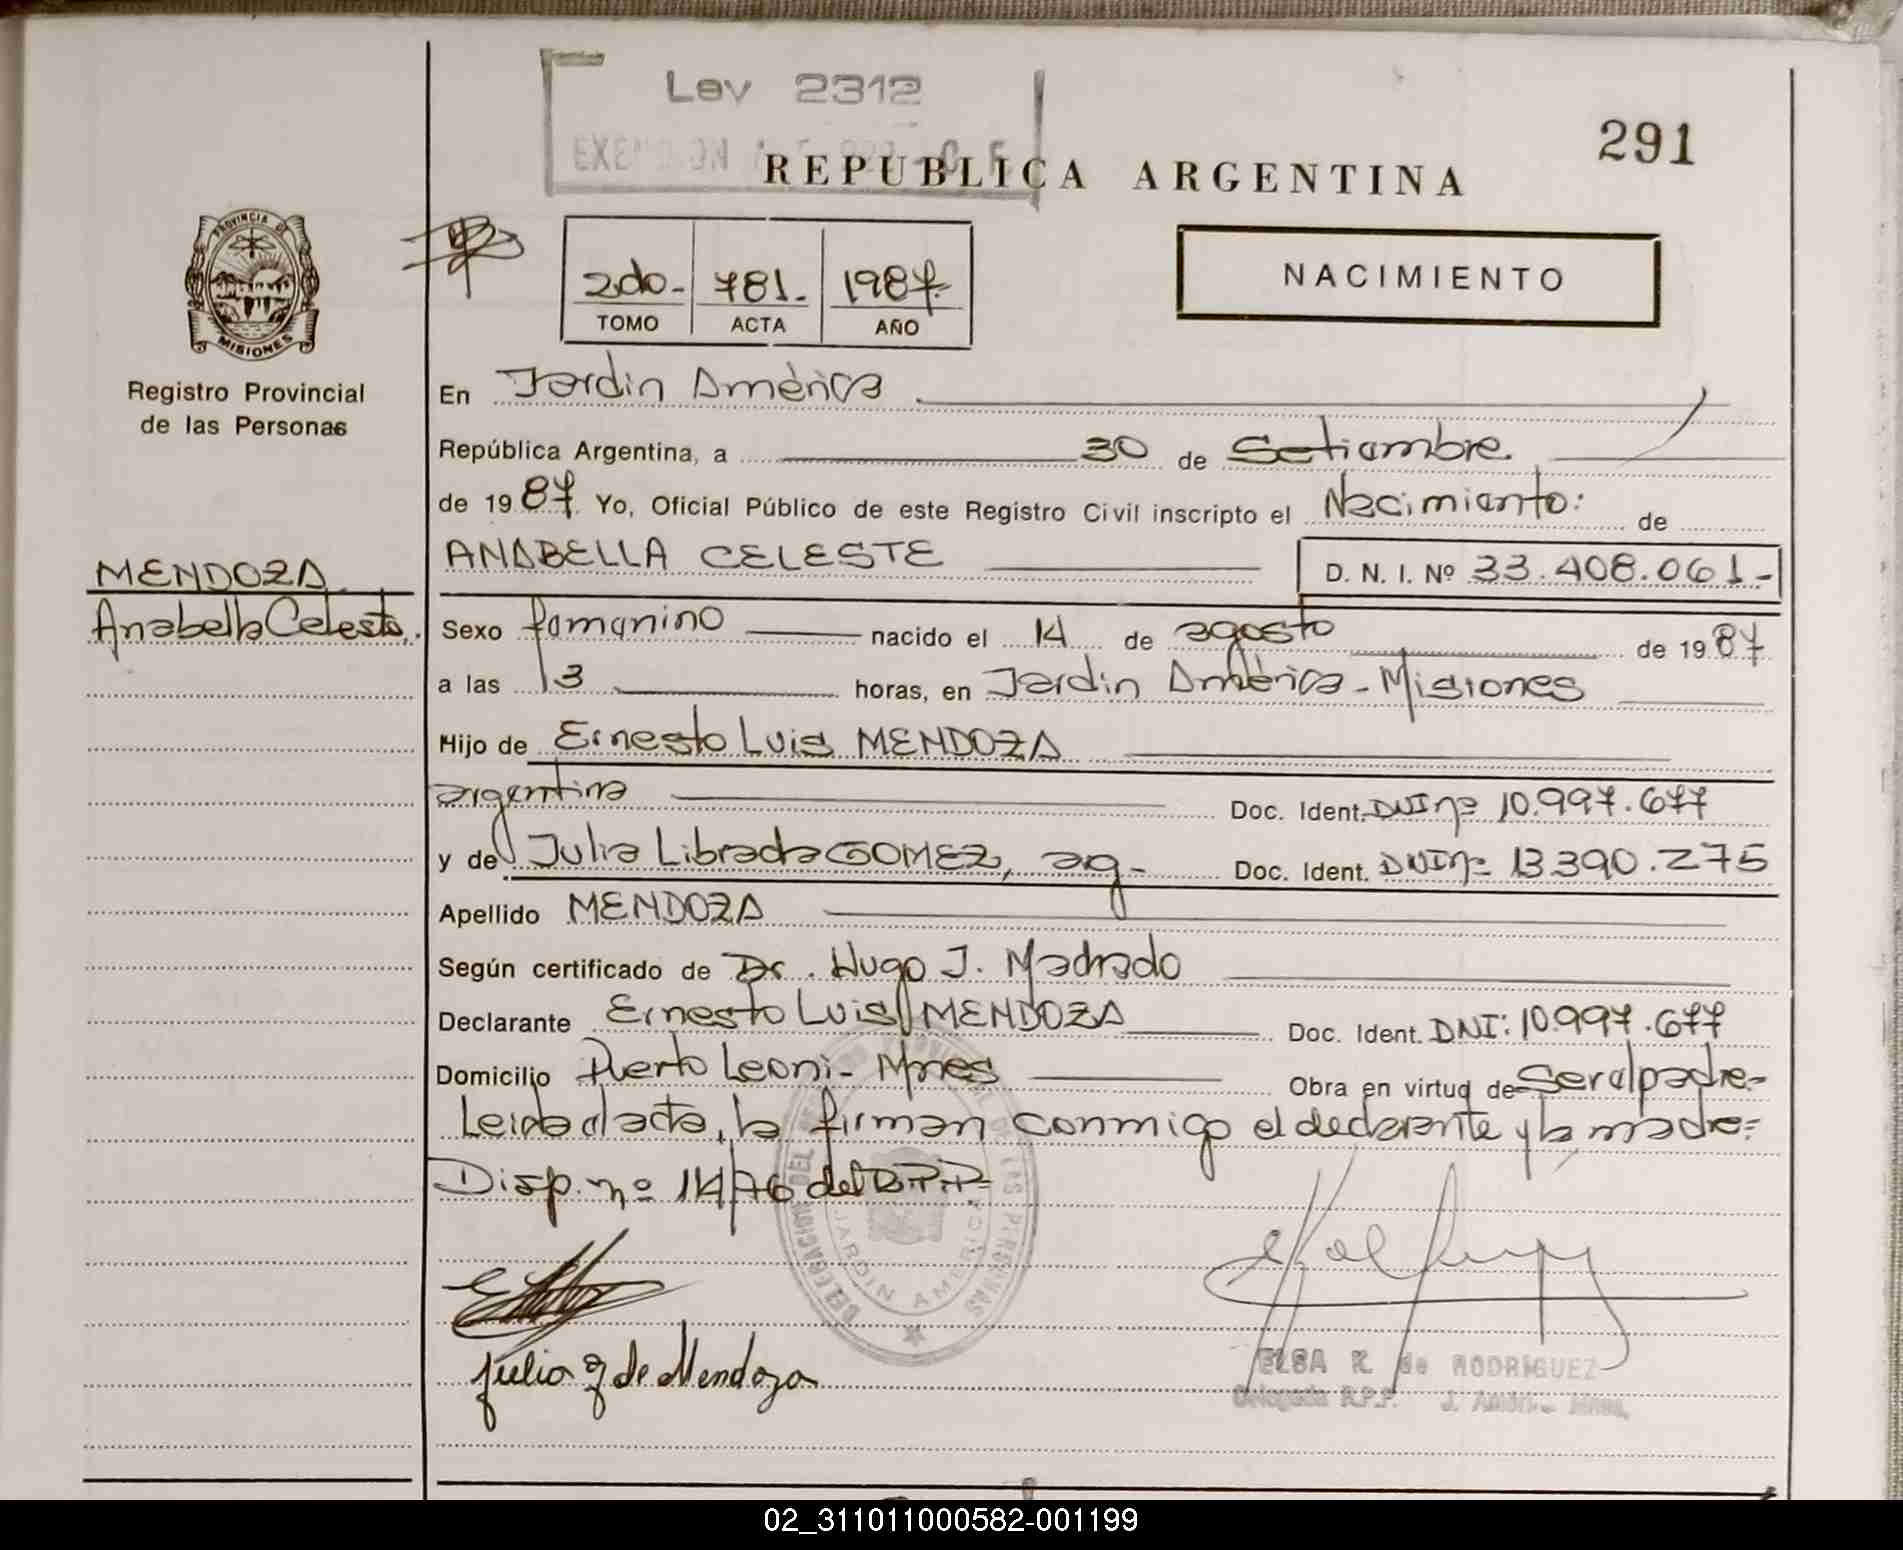 Ley 2312
291
REPUBLICA ARGENTINA
PROVINCIA DE
MISIONES
Registro Provincial
de las Personas
2do- 781- 1987-
TOMO ACTA AÑO
NACIMIENTO
En Jardin América
República Argentina, a 30 de Setiembre.
de 1987 Yo, Oficial Público de este Registro Civil inscripto el Nacimiento: de
MENDOZA
Anabella Celeste.
ANABELLA CELESTE D. N. I. Nº 33.408.061-
Sexo femenino nacido el 14 de agosto de 1987
a las 13 horas, en Jardin América - Misiones
Hijo de Ernesto Luis MENDOZA
argentino Doc. Ident. DNI nº 10.997.677
y de Julia Librada GOMEZ, arg- Doc. Ident. DNI nº 13.390.275
Apellido MENDOZA
Según certificado de Dr. Hugo J. Madrado
Declarante Ernesto Luis MENDOZA Doc. Ident. DNI: 10.997.677
Domicilio Puerto Leoni- Mnes Obra en virtud de Ser el padre-
Leida el acta, la firman conmigo el declarante y la madre=
Disp. nº 14/76 del R.P.P=
DELEGACION DEL REGISTRO PROVINCIAL DE LAS PERSONAS
JARDIN AMERICA
Julia G de Mendoza
ELSA K. de RODRIGUEZ
Delegada R.P.P. J. América
02_311011000582-001199